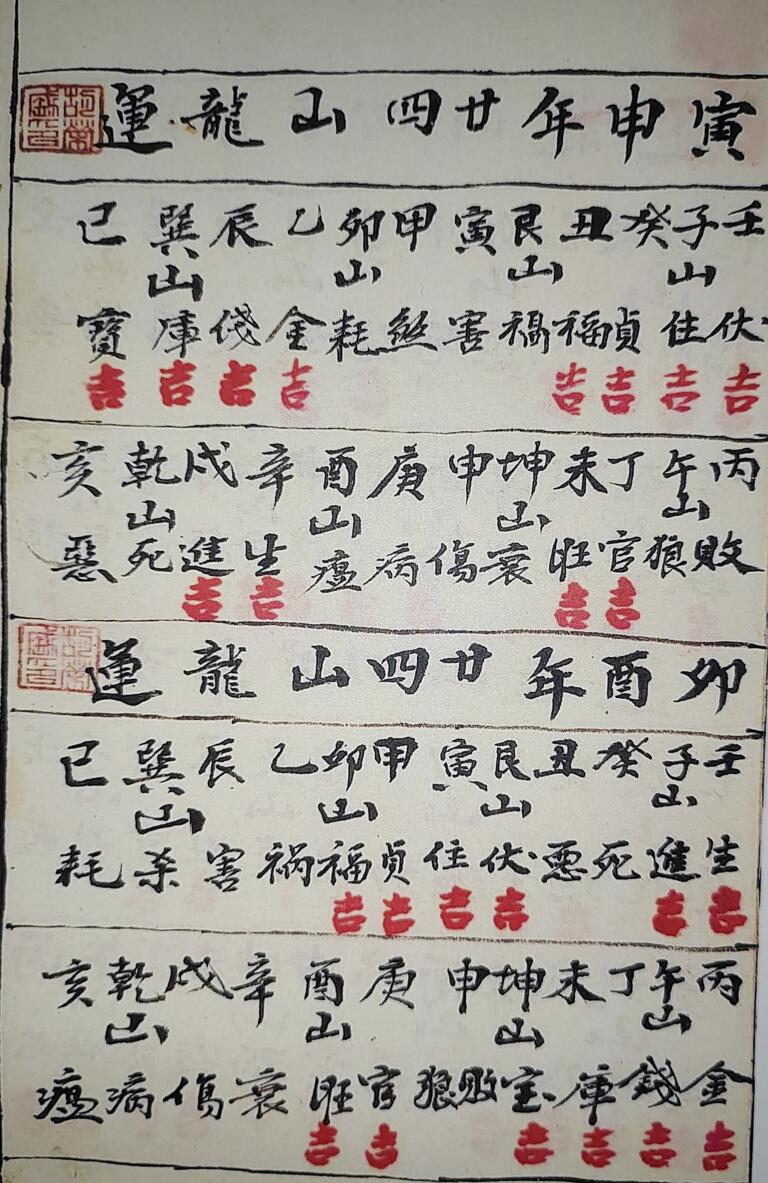 寅申年廿四山龍運
壬子癸丑艮寅甲卯乙辰巽巳
山山山山
伏住貞福禍害煞耗金俴庫寶
吉吉吉吉吉吉吉吉
丙午丁未坤申庚酉辛戌乾亥
山山山山
敗狼官旺衰傷病瘟生進死惡
吉吉吉吉
卯酉年廿四山龍運
壬子癸丑艮寅甲卯乙辰巽巳
山山山山
生進死悪伏住貞福祸害杀耗
吉吉吉吉吉吉
丙午丁未坤申庚酉辛戌乾亥
山山山山
金錢庫宝敗狼官旺衰傷病瘟
吉吉吉吉吉吉